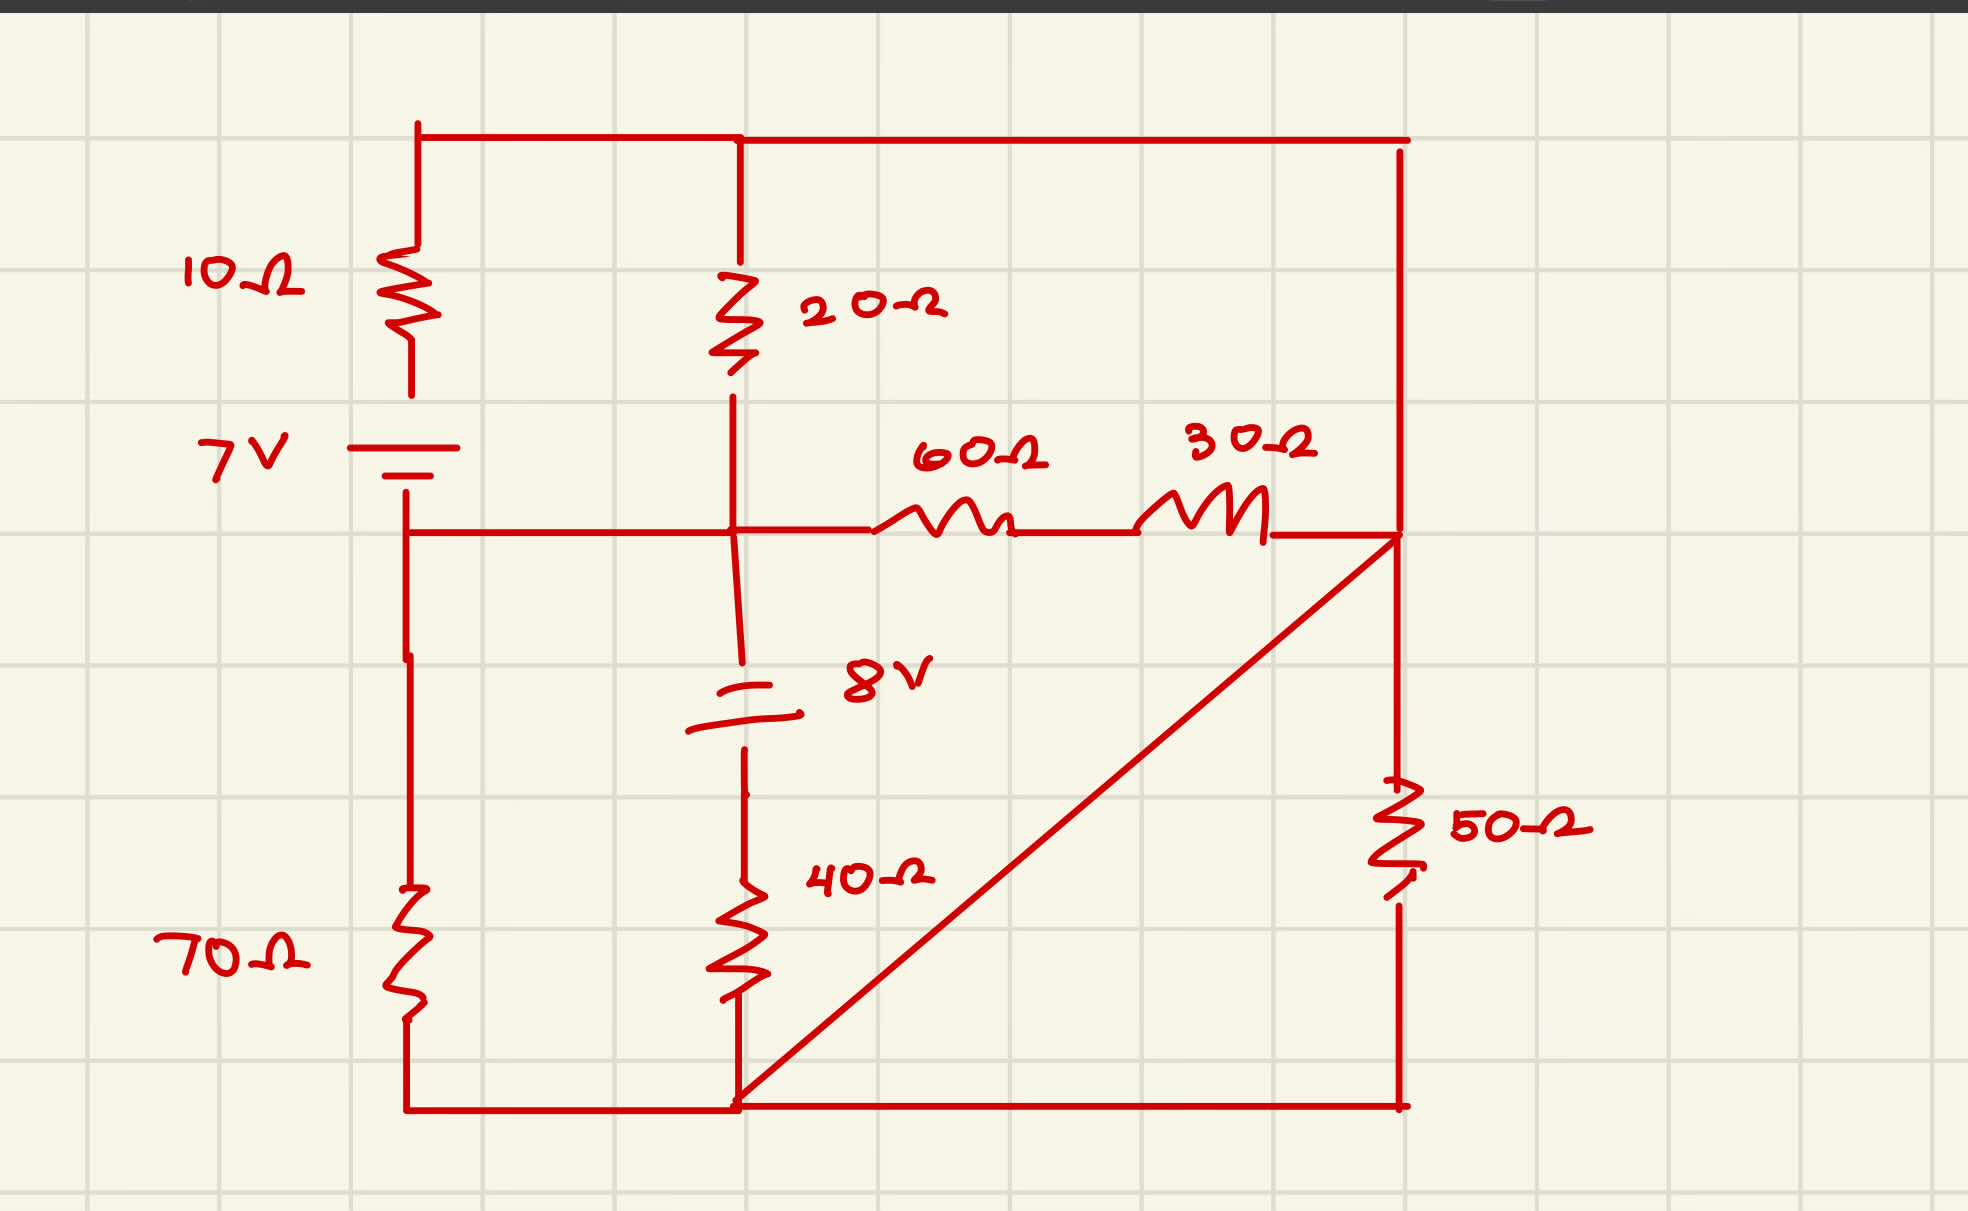 10Ω
20Ω
7V
60Ω
30Ω
8V
50Ω
40Ω
70Ω